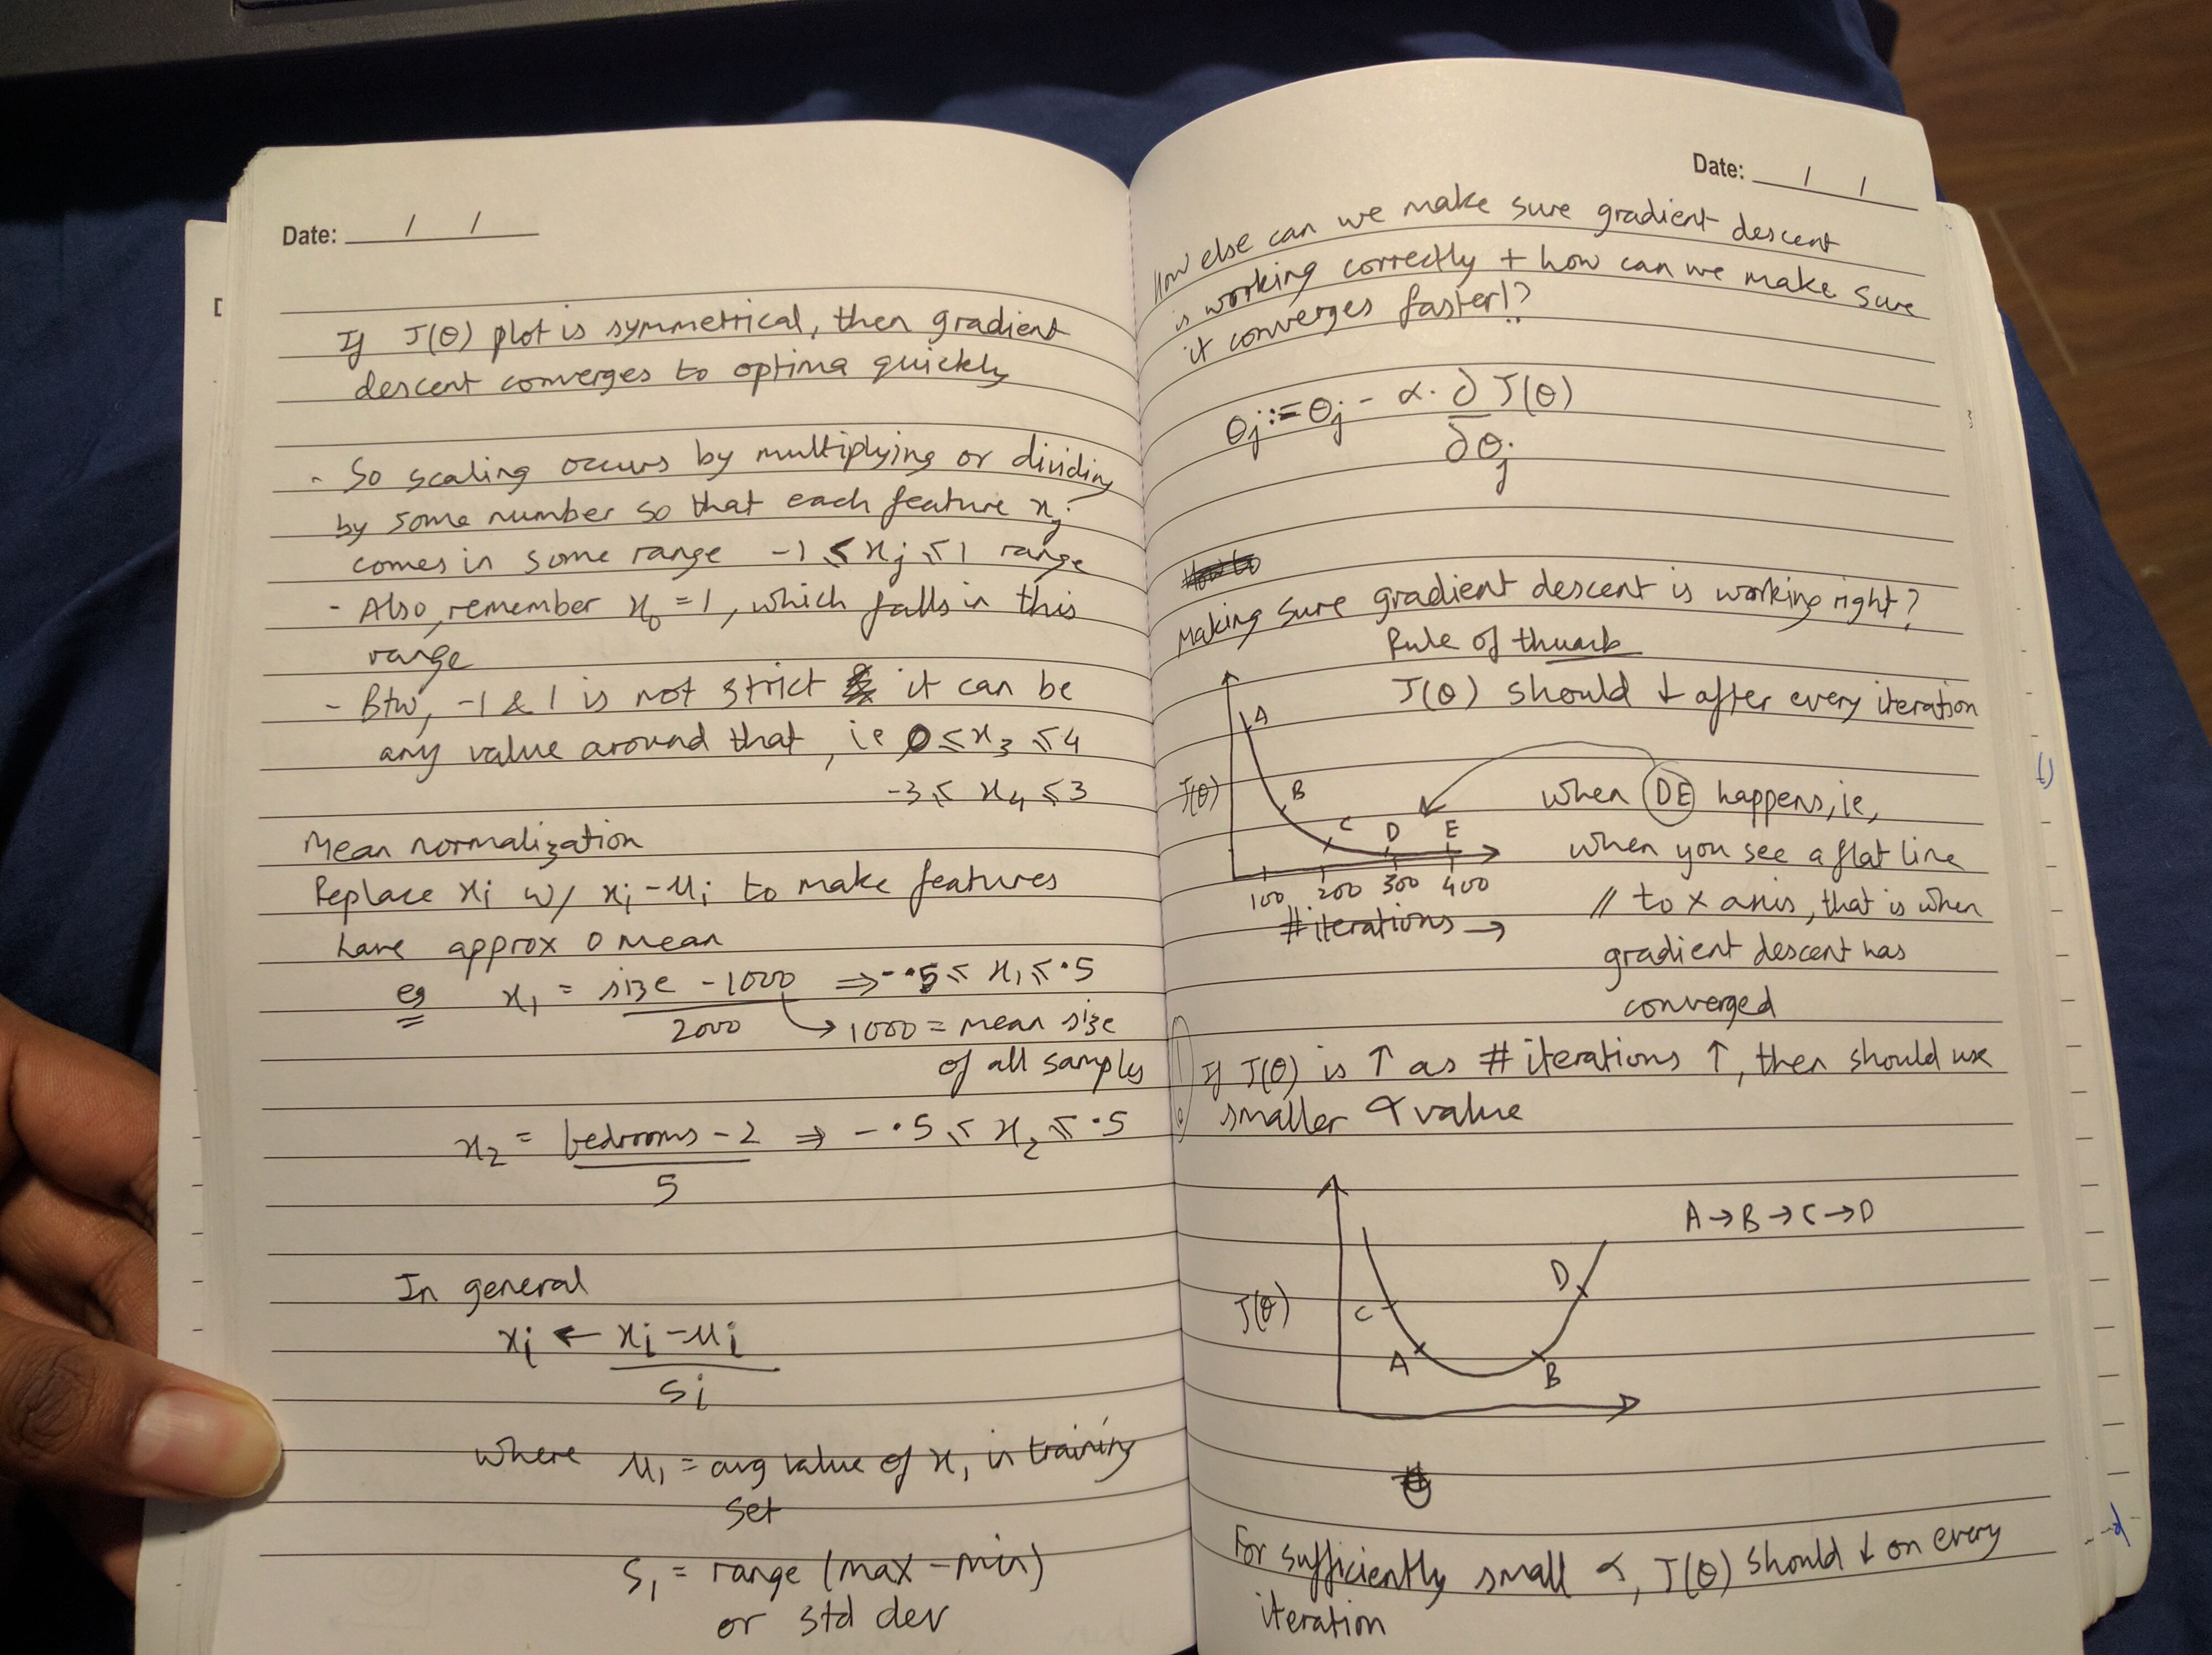 Date: / /
If J(θ) plot is symmetrical, then gradient
descent converges to optima quickly
- So scaling occurs by multiplying or dividing
by some number so that each feature xj
comes in some range -1 ≤ xj ≤ 1 range
- Also, remember x0 = 1, which falls in this
range
- Btw, -1 & 1 is not strict it can be
any value around that, ie 0 ≤ x3 ≤ 4
-3 ≤ x4 ≤ 3
Mean normalization
Replace xi w/ xi - μi to make features
have approx 0 mean
eg x1 = size - 1000 ⇒ -.5 ≤ x1 ≤ .5
2000 → 1000 = mean size
of all samples
x2 = bedrooms - 2 ⇒ -.5 ≤ x2 ≤ .5
5
In general
xi ← xi - μi
si
where μ1 = avg value of x1 in training
set
s1 = range (max - min)
or std dev
Date: / /
How else can we make sure gradient descent
is working correctly + how can we make sure
it converges faster!?
θj := θj - α. ∂ J(θ)
∂θj
How to
Making sure gradient descent is working right?
Rule of thumb
J(θ) should ↓ after every iteration
A
B
C D E
J(θ)
100 200 300 400
#iterations →
when DE happens, ie,
when you see a flat line
// to x axis, that is when
gradient descent has
converged
! If J(θ) is ↑ as # iterations ↑, then should use
smaller α value
A → B → C → D
D
C
J(θ)
A
B
θ
For sufficiently small α, J(θ) should ↓ on every
iteration